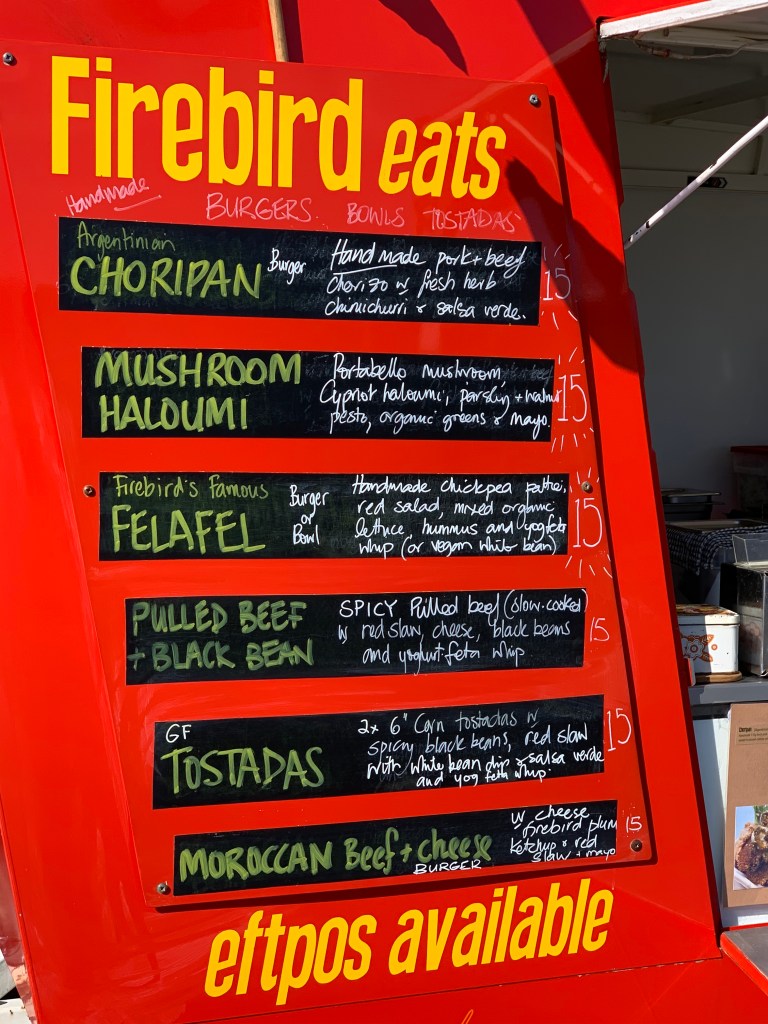 Firebird eats
Handmade
BURGERS. BOWLS TOSTADAS
Argentinian
CHORIPAN
Burger
Handmade pork + beef
chorizo w fresh herb
chimichurri & salsa verde.
15
MUSHROOM
HALOUMI
Portabello mushroom
Cypriot haloumi, parsley + walnut
pesto, organic greens & mayo.
15
Firebird's Famous
FELAFEL
Burger
or
Bowl
Handmade chickpea pattie,
red salad, mixed organic
lettuce, hummus and yog feta
whip (or vegan white bean)
15
PULLED BEEF
+ BLACK BEAN
SPICY Pulled beef (slow-cooked)
w red slaw, cheese, black beans
and yoghurt feta whip
15
GF
TOSTADAS
2x 6" Corn tostadas w
spicy black beans, red slaw
with white bean dip & salsa verde
and yog feta whip.
15
MOROCCAN Beef + cheese
BURGER
w cheese
firebird plum
ketchup & red
slaw + mayo
15
eftpos available